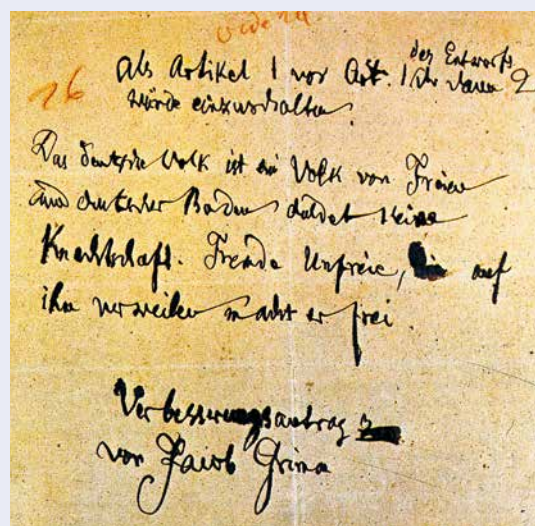 des Entwurfs
16 als Artikel 1 vor Art. 1 der dann 2
würde einzuschalten:
Das deutsche Volk ist ein Volk von Freien
und deutscher Boden duldet keine
Knechtschaft. Fremde Unfreie, die auf
ihm verweilen macht er frei.
Verbesserungsantrag
von Jacob Grimm